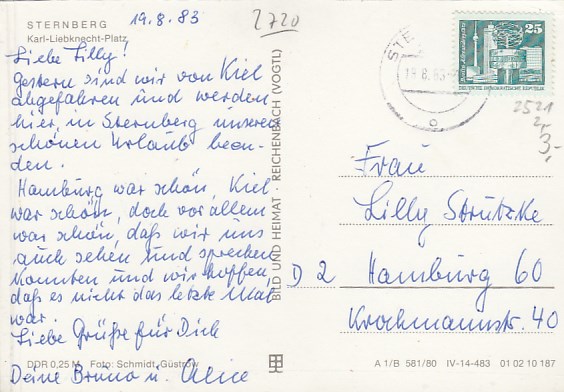 STERNBERG
Karl-Liebknecht-Platz
19.8.83
2720
Liebe Lilly!
Gestern sind wir von Kiel
abgefahren und werden
hier, in Sternberg unseren
schönen Urlaub been-
den.
Hamburg war schön, Kiel
war schön, doch vor allem
war schön, daß wir uns
auch sehen und sprechen
konnten und wir hoffen,
daß es nicht das letzte Mal
war.
Liebe Grüße für Dich
Deine Bruno u. Alice
DDR 0,25 M Foto: Schmidt, Güstrow
BILD UND HEIMAT · REICHENBACH (VOGTL)
25
DEUTSCHE DEMOKRATISCHE REPUBLIK
STE
19.8.83
2521
2,-
3,-
Frau
Lilly Strutzke
D 2 Hamburg 60
Krochmannstr. 40
A 1/B 581/80 IV-14-483 01 02 10 187